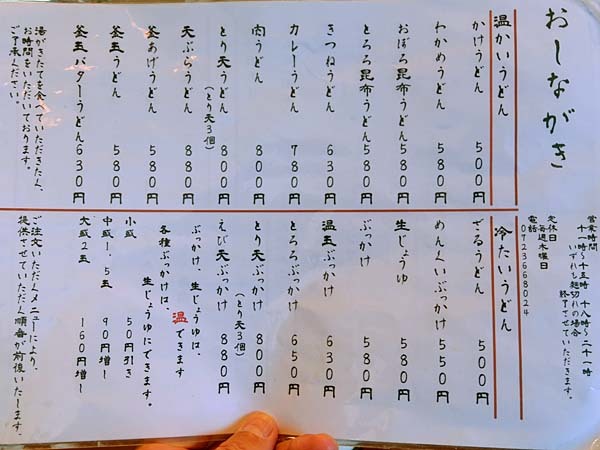 おしながき
営業時間
十一時～十五時 十八時～二十一時
いずれも麺切れの場合
終了させていただきます。
定休日
毎週水曜日
電話
0723668024
温かいうどん
かけうどん 500円
わかめうどん 580円
おぼろ昆布うどん 580円
とろろ昆布うどん 580円
きつねうどん 630円
カレーうどん 780円
肉うどん 800円
とり天うどん 800円
(とり天3個)
天ぷらうどん 880円
釜あげうどん 580円
釜玉うどん 580円
釜玉バターうどん 630円
湯がきたてを食べていただきたく、
お時間をいただいております。
ご了承ください。
冷たいうどん
ざるうどん 500円
めんくいぶっかけ 550円
生じょうゆ 580円
ぶっかけ 580円
温玉ぶっかけ 630円
とろろぶっかけ 650円
とり天ぶっかけ 800円
(とり天3個)
えび天ぶっかけ 880円
ぶっかけ、生じょうゆは、
温できます
各種ぶっかけは、
生じょうゆにできます。
小盛 50円引き
中盛1.5玉 90円増し
大盛2玉 160円増し
ご注文いただくメニューにより、
提供させていただく順番が前後いたします。